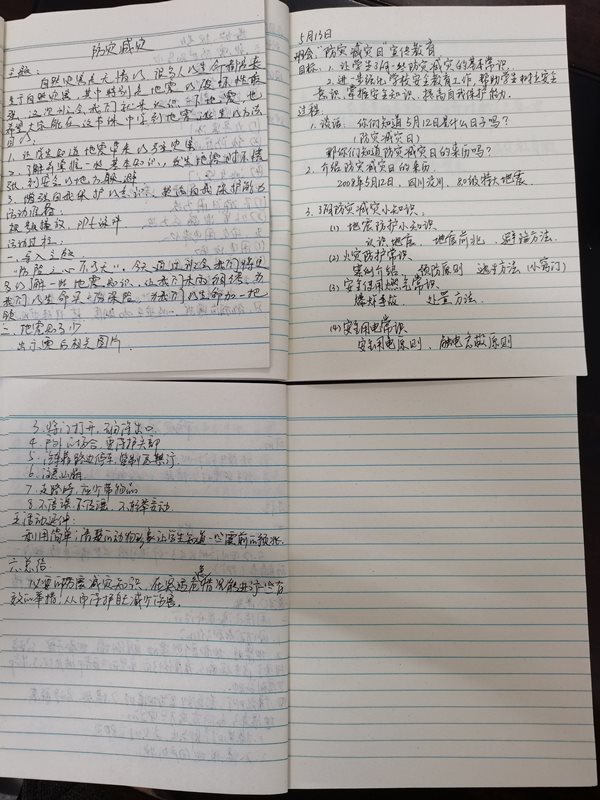 防灾减灾
主题：
自然灾害是无情的，很多人的生命都丧
生于自然灾害，其中特别是地震的破坏性最
强，这次班会我们就来认识一下地震，也
希望大家能在这节课中学到地震逃生的方法
目的：
1. 让学生知道地震带来的多生地震
2. 了解和掌握一些基本知识，发生地震时不慌
张，到安全的地方躲避
3. 增强自我保护的意识，提高自我保护能力
活动准备：
视频播放，PPT课件
活动过程：
一、导入主题
"防险之心不可无"，今天通过班会我们将更
多的了解一些地震知识，
我们的生命买上保险，为我们的生命加一把
锁
二、地震知多少
出示震后相关图片
5月13日
班会："防灾减灾日"宣传教育
目标：1. 让学生了解一些防灾减灾的基本常识。
2. 进一步强化学校安全教育工作，帮助学生树立安全
意识，掌握安全知识，提高自我保护能力。
过程：
1. 谈话：你们知道5月12日是什么日子吗？
（防灾减灾日）
那你们知道防灾减灾日的来历吗？
2. 介绍防灾减灾日的来历
2008年5月12日，四川汶川，8.0级特大地震。
3. 了解防灾减灾小知识。
(1) 地震防护小知识
认识地震 地震前兆 避险方法.
(2) 火灾防护常识
案例介绍 预防原则 逃生方法（小窍门）
(3) 安全使用燃气常识
爆炸事故 处置方法.
(4) 安全用电常识
安全用电原则、触电急救原则
3. 将门打开，确保出口
4. 户外的场合，要保护头部
5. 汽车靠路边停车，管制区禁行
6. 注意山崩
7. 避难时，应少带物品
8. 不信谣，不传谣，不轻举妄动
五、活动延伸：
利用简单、常见的动物形象让学生知道一些震前的预兆.
六、总结
必要的防震减灾知识，在突遇危急情况能进行些有
效的举措，从而保护自己减少伤害.